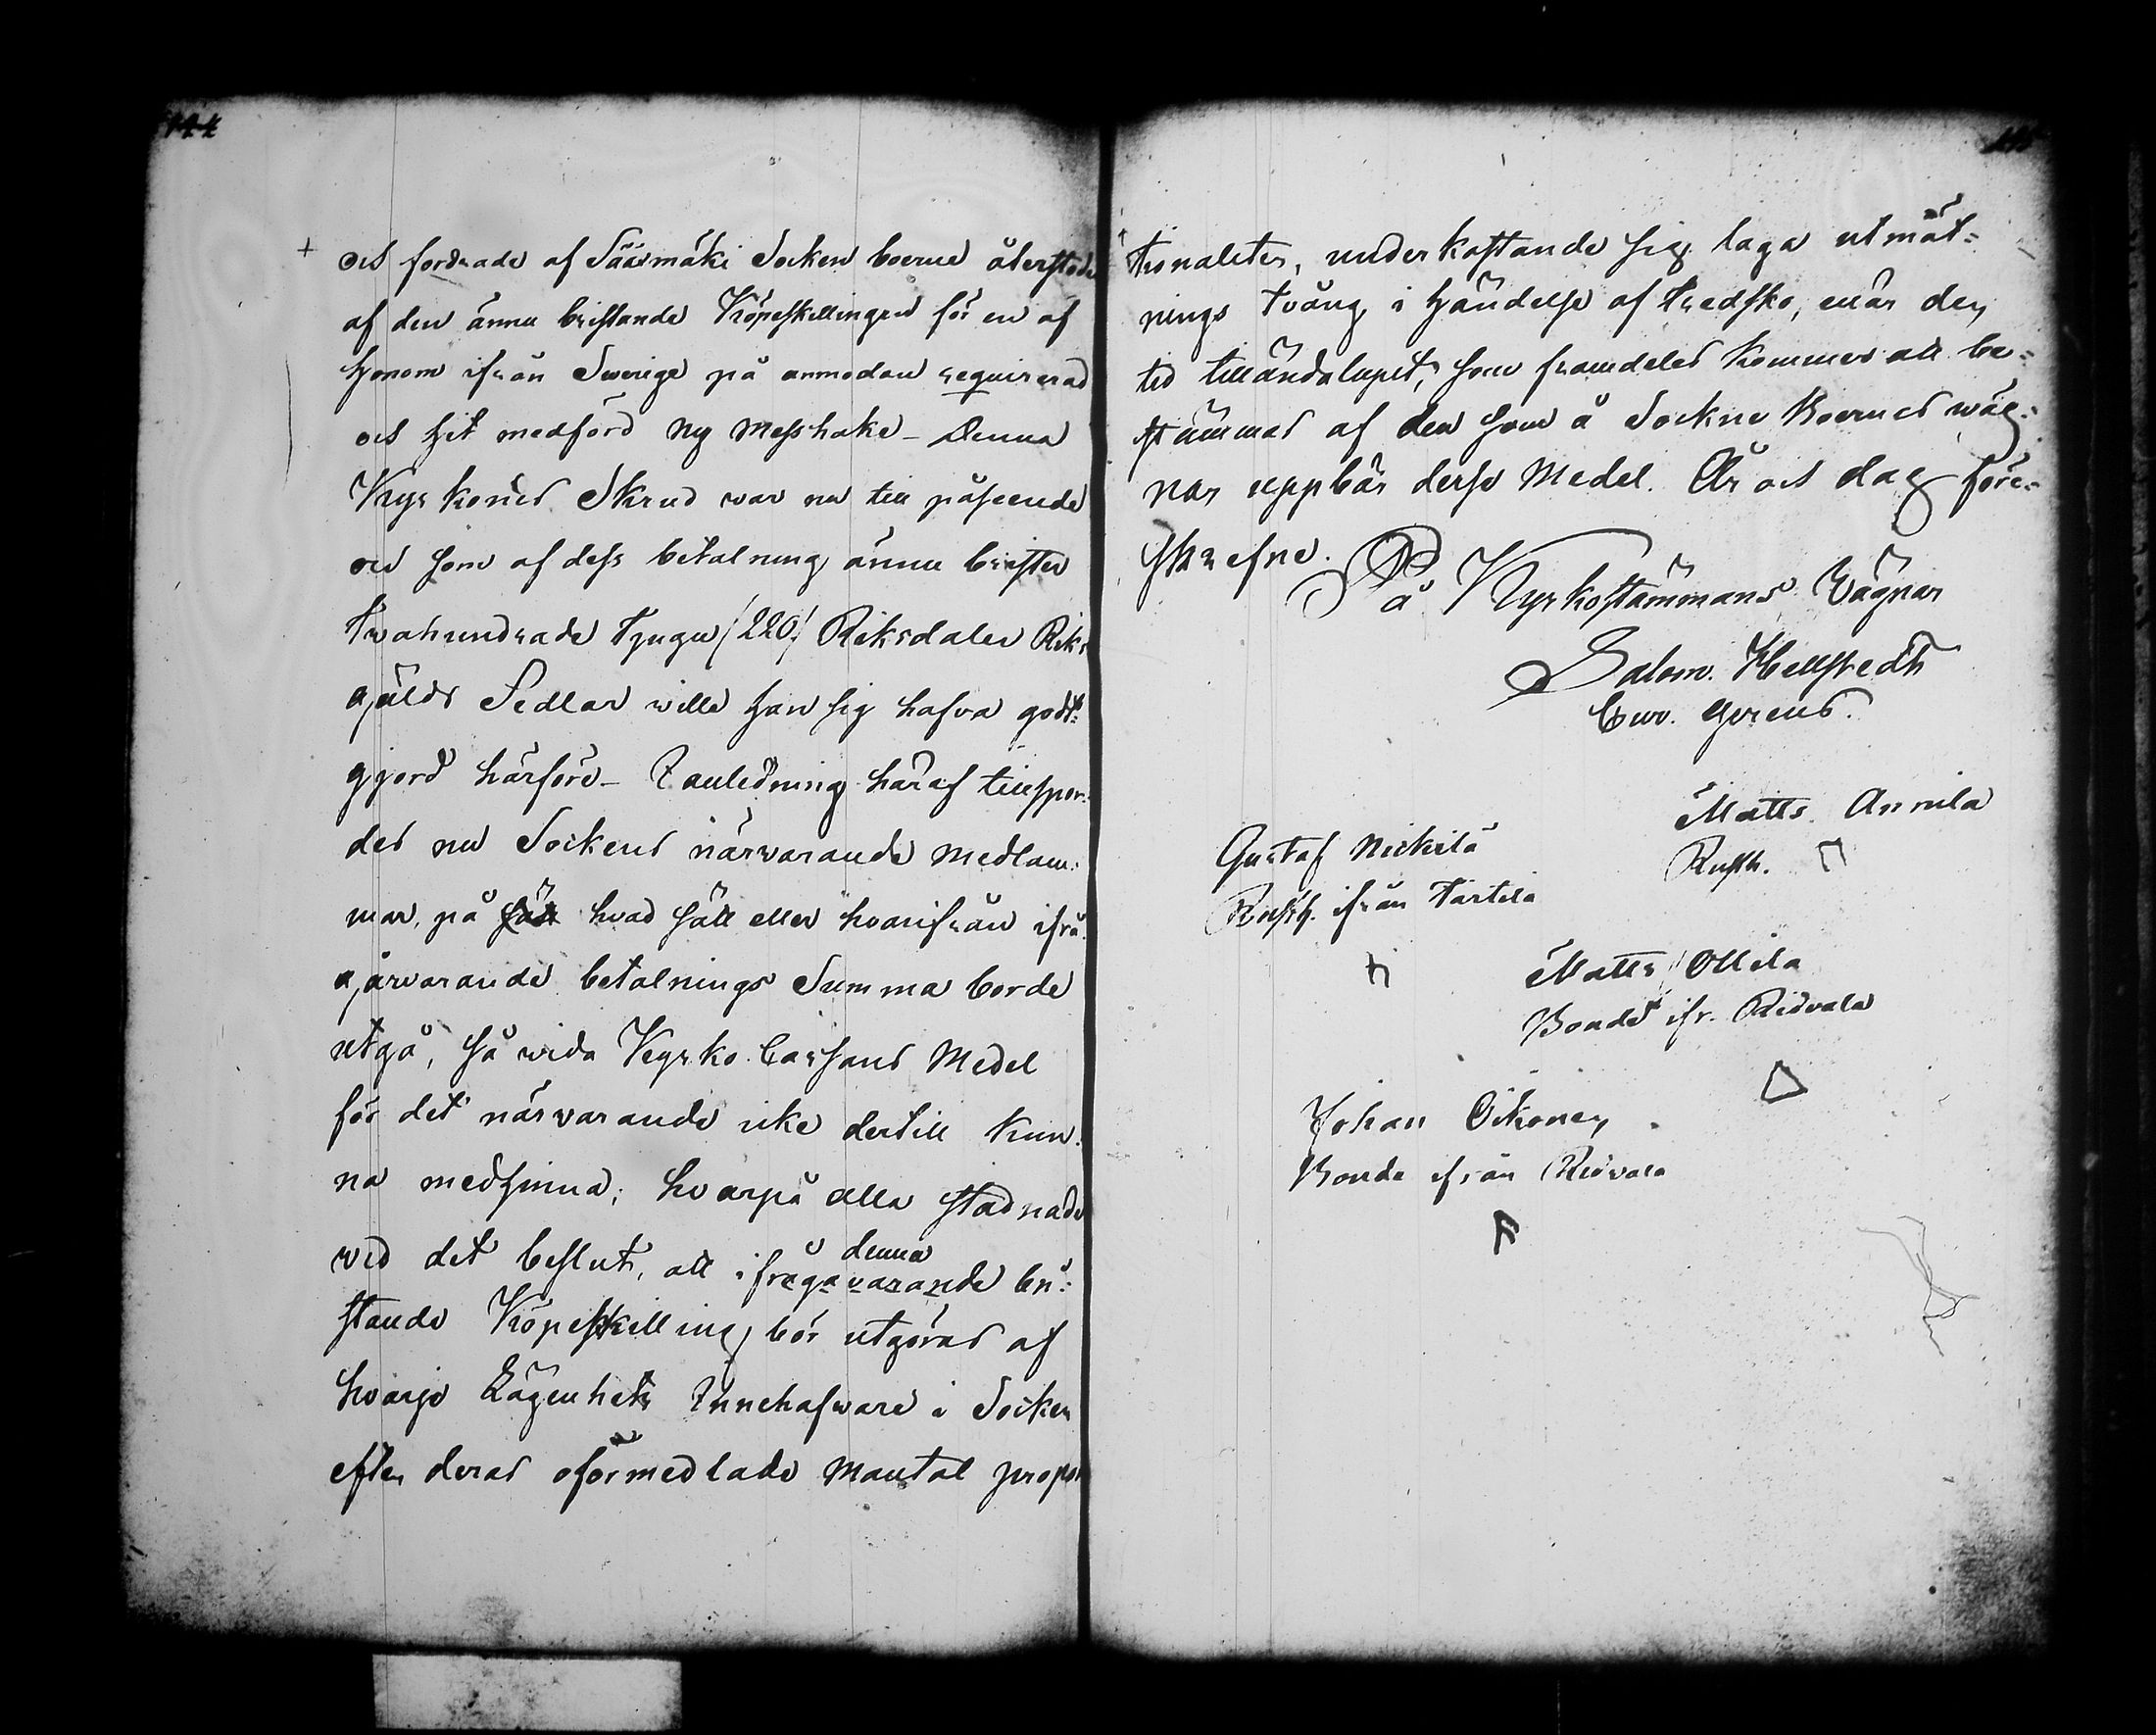 144
+ och fordrade af Sääxmäki Socken boerne återstode
af den ännu bristande Köpeskillingen för en af
honom ifrån Swerige på anmodan requirerad
och hit medförd ny Messhake - Denna
Kyrkones Skrud war nu till påseende
och som af dess betalning ännu brister
Twåhundrade tjugu /220/ Riksdaler Riks
gälds Sedlar wille han sig hafva godt-
gjord härföre - I anledning häraf tillspor-
des nu Sockens närwarande medlem-
mar, på sätt hvad sätt eller hvarifrån ifrå-
gavarande betalnings Summa borde
utgå, så wida Kyrko Cassans Medel
för det närvarande icke dertill kun-
na medhinna; hvarpå alla stadnade
denna
wid det beslut, att ifrågavarande bri-
stande Köpeskilling bör utgöras af
hvarje Lägenhets Innehafware i Socken
efter deras oförmedlade Mantal propor
tionaliter, underkastande sig laga utmät-
nings tvång i händelse af tredsko, enär den
tid tilländalupit, som framdeles kommer att be-
stämmas af den som å Sockne Boernes wäg-
nar uppbär desse Medel. År och dag före-
skrefne.
På Kyrkostämmans Wägnar
Salom. Hellstedt
Cur. gerens.
Matts Annila
Rusth.
Gustaf Nickilä
Rusth. ifrån Tartila
Matts Ollila
Bonde ifr. Ridvala
Johan Oikonen
Bonde ifrån Ridvala